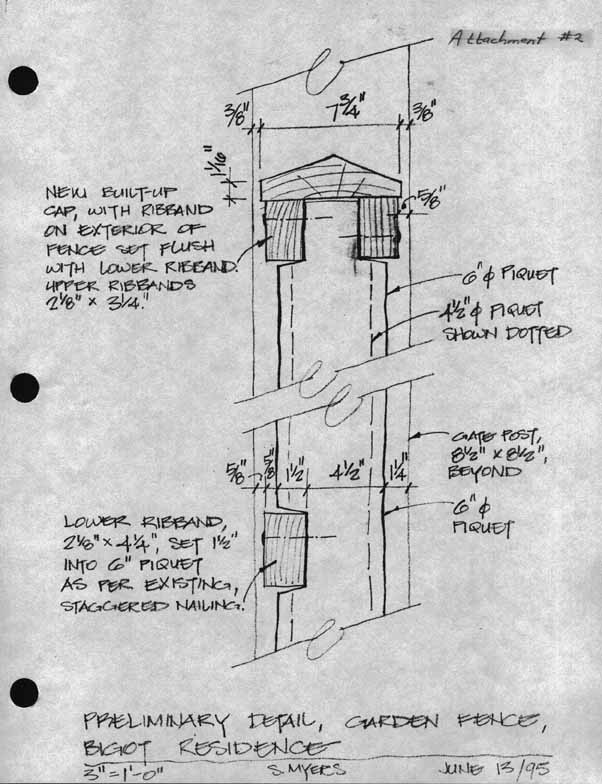 Attachment #2
3/8"
7 3/4"
3/8"
1 1/16"
5/8"
NEW BUILT-UP
CAP, WITH RIBBAND
ON EXTERIOR OF
FENCE SET FLUSH
WITH LOWER RIBBAND.
UPPER RIBBANDS
2 1/8" x 3 1/4."
6"ϕ PIQUET
4 1/2"ϕ PIQUET
SHOWN DOTTED
GATE POST,
8 1/2" x 8 1/2",
BEYOND
5/8"
5/8"
1 1/2"
4 1/2"
1 1/4"
6"ϕ
PIQUET
LOWER RIBBAND,
2 1/8" x 4 1/4", SET 1 1/2"
INTO 6" PIQUET
AS PER EXISTING,
STAGGERED NAILING.
PRELIMINARY DETAIL, GARDEN FENCE,
BIGOT RESIDENCE
3"=1'-0"
S. MYERS
JUNE 13/95